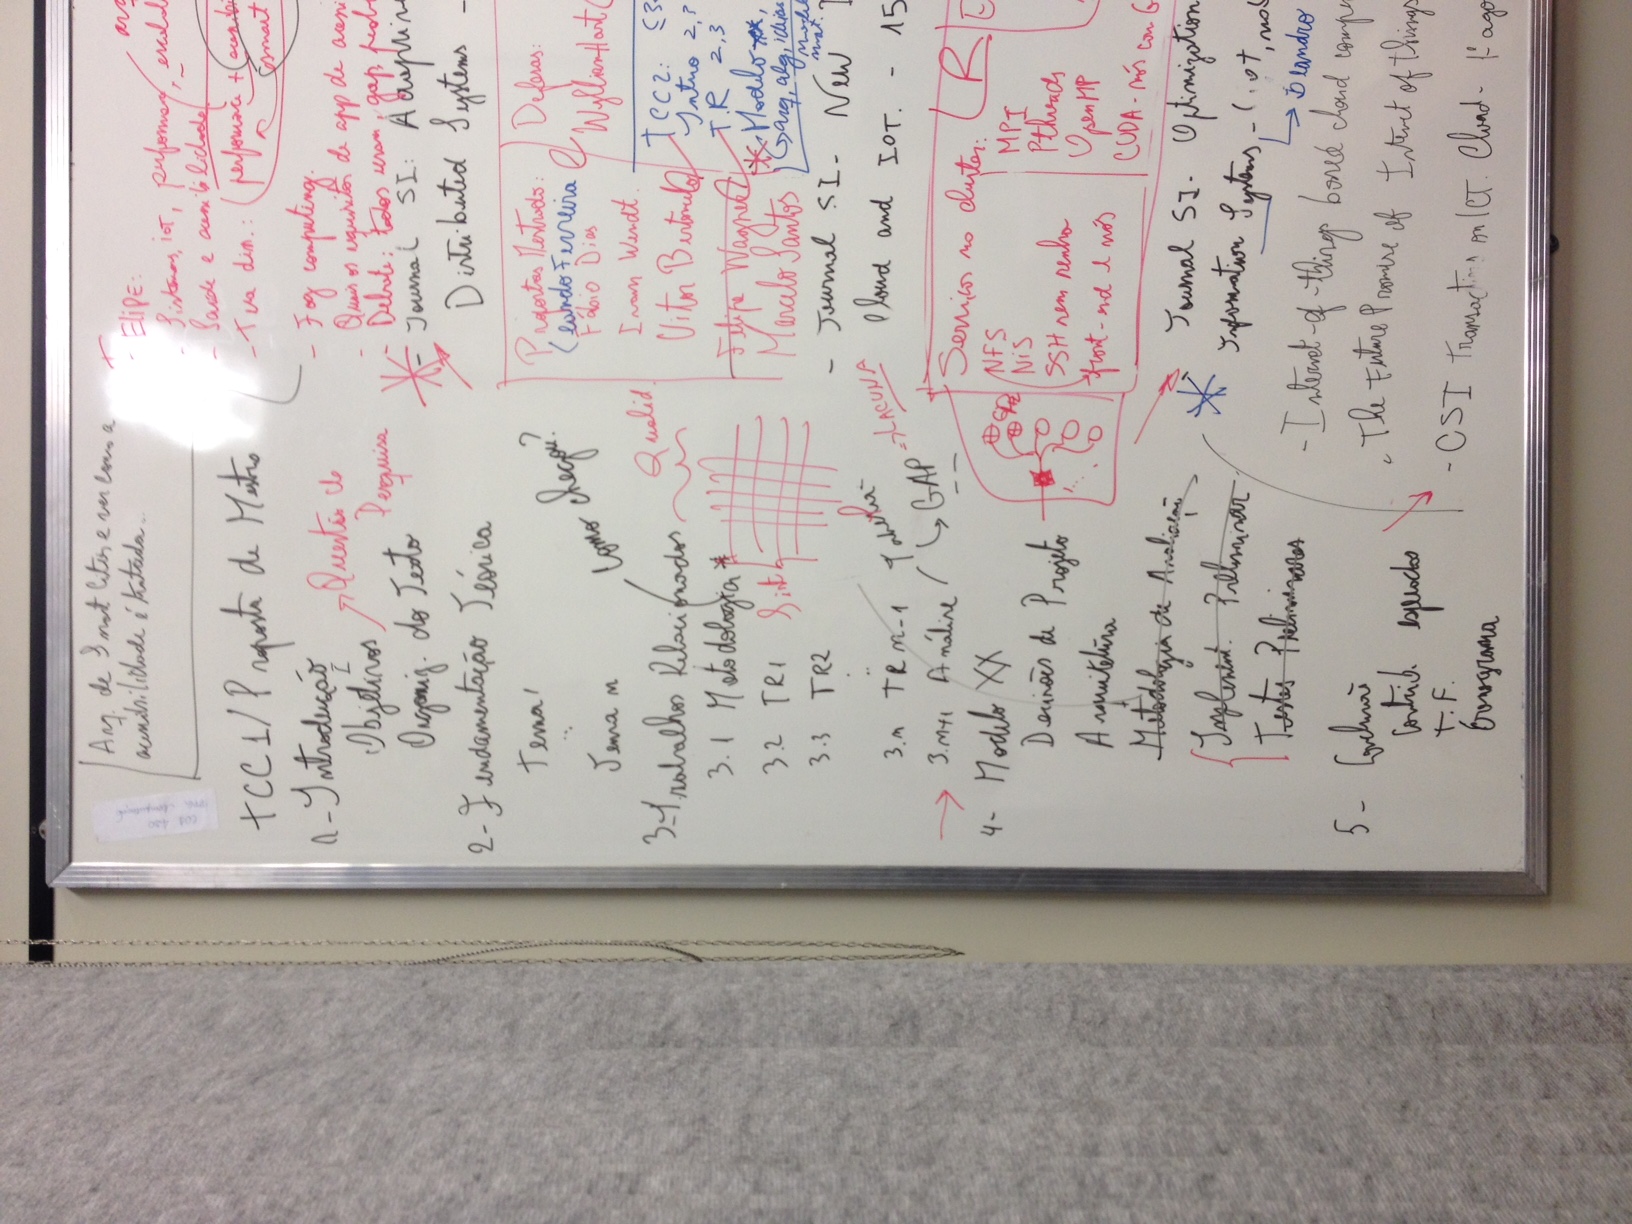 Arq. de Smart Cities e ver como a
acessibilidade é tratada..
TCC1/Proposta de Mestra
1-Introdução
Objetivos
Organiz. do Texto
Questão de
Pesquisa
2-Fundamentação Teórica
Tema 1
..
Tema n
Como chegou?
3-Trabalhos Relacionados
Qualid.
3.1 Metodologia *
3.2 TR1
Sint
3.3 TR2
:
3.n TR n-1
Tabelha-
3.n+1 Análise /
GAP => LACUNA
4- Modelo XX
Decisões de Projeto
Arquitetura
Metodologia de Avaliação
Implement. Preliminar
Testes Preliminares
5- Conclusão
Contrib. esperados
T.F.
Cronograma
FELIPE:
- Sistemas, IoT, performan,
- Saúde e acessibilidade
- Tua diss.: (performance +
smart
- Fog computing.
- Quais os requisitos de app de
- Debate: todos usam, gap,
- Journal SI:
Distributed Systems -
Propostas Mestrado:
Leandro Ferreira
Fábio Dias
Ivam Wendt.
Vitor Bertoncello
Felipe Wagner
Marcelo Santos
Defesas:
WyllianHart
TCC2:
Intro 2,3
T.R 2,3
* Modelo
arq, alg, ideias
mat.
- Journal SI- New
Cloud and IOT. - 15
Serviços no cluster:
NFS
NiS
SSH sem senha
front-end e nós
R
MPI
Pthreads
OpenMP
CUDA- nós com G
Journal SI- Optimization
Information Systems -
Leandro
- Internet-of-things based cloud
. The Future Promise of Internet of things
- CSI Transactions on ICT. Cloud-